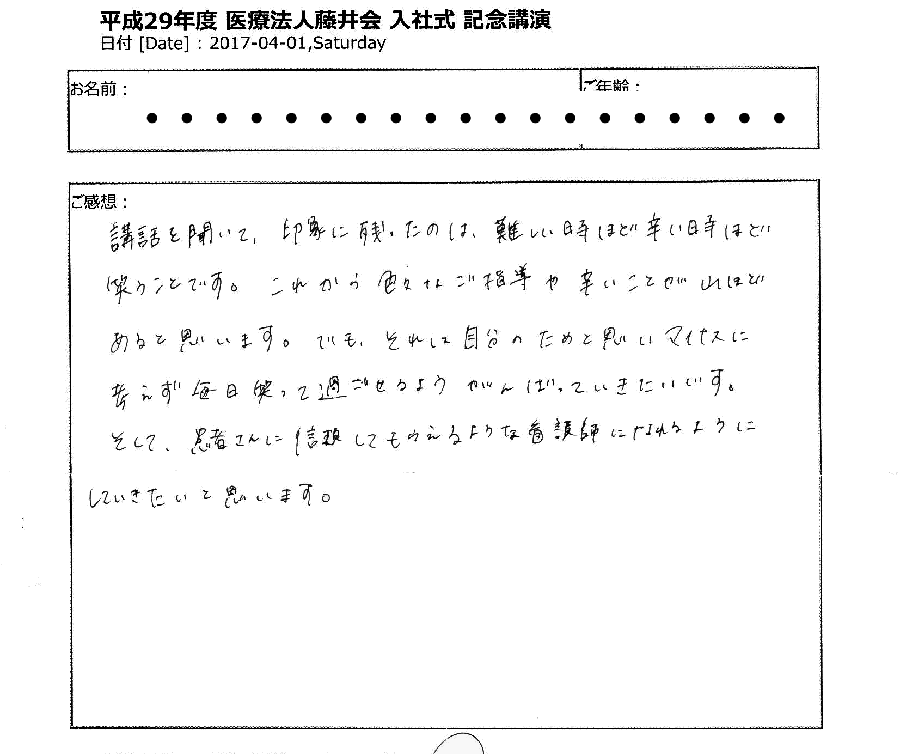 平成29年度 医療法人藤井会 入社式 記念講演
日付 [Date] : 2017-04-01,Saturday
お名前：
ご年齢：
ご感想：
講話を聞いて、印象に残ったのは、難しい時ほど辛い時ほど
笑うことです。これから色々なご指導や辛いことが山ほど
あると思います。でも、それは自分のためと思いマイナスに
考えず毎日笑って過ごせるようがんばっていきたいです。
そして、患者さんに信頼してもらえるような看護師になれるように
していきたいと思います。